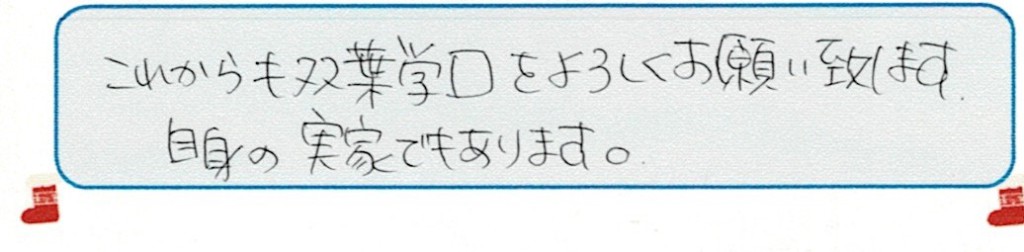 これからも双葉学口をよろしくお願い致します.
自身の実家でもあります。